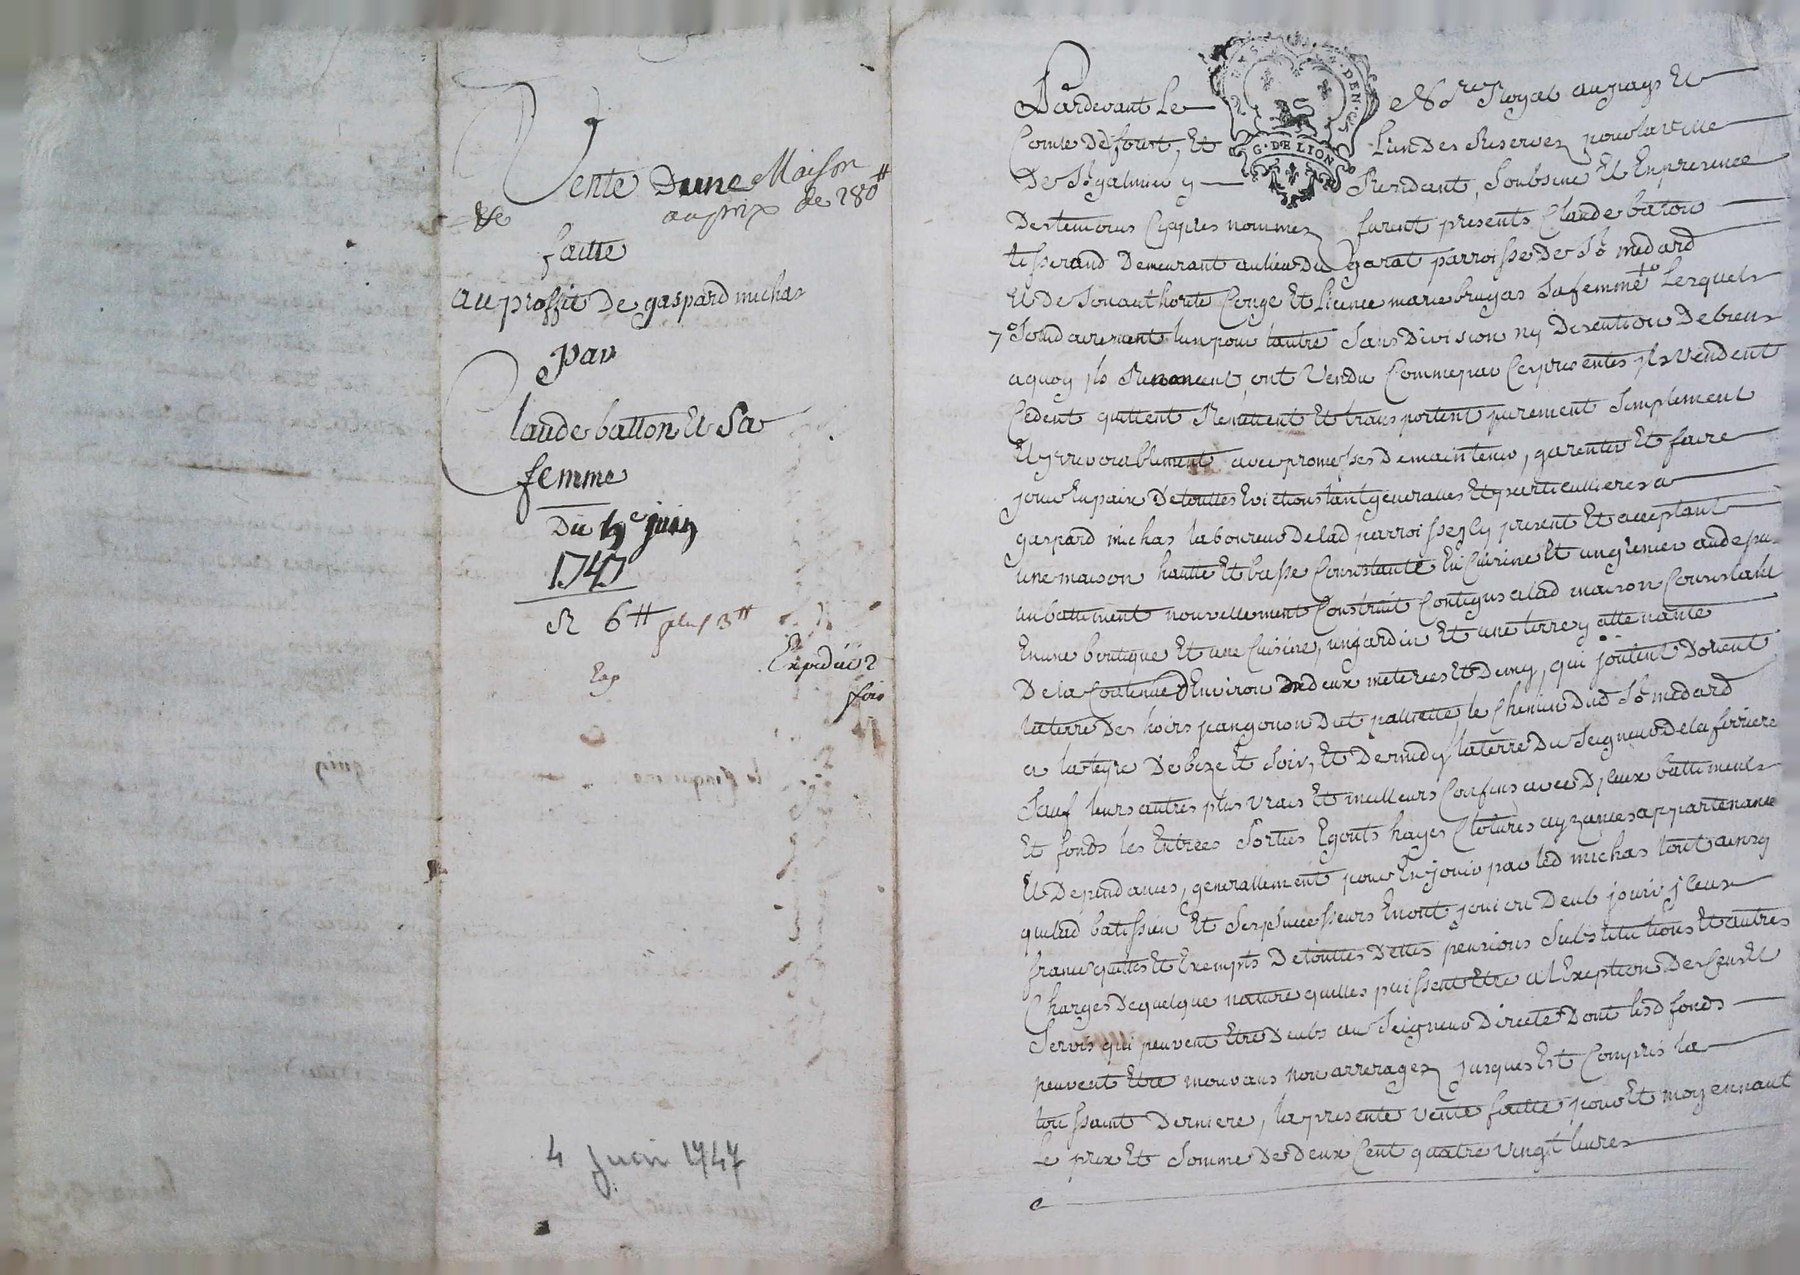 Vente Dune Maison
&c au prix de 280#
faitte
au proffit De gaspard michas
par
Claude batton Et Sa
femme
Du 4e juin
1747
R 6# plus 3#
Expediée 2
fois
Exp
4 Juin 1747
G. DE LION
Pardevant Le Nore Royal au pays Et
Comté De foret, Et Lun Des Reservez pour la ville
De St galmier y Residant, Soubsigné Et En presence
Des temoins Cy apres nommez furent presents Claude baton
tisserand Demeurant au lieu Du garat parroisse De St medard
Et De Son authorité Conge Et licence marie bruyas Sa femme Lesquels
Solidairement lun pour lautre Sans Division ny Discution De biens
a quoy ils Renoncent ont Vendu Comme par Ces presentes ils Vendent
Cedent quittent Remettent Et transportent purement Simplement
Et yrrevocablement avec promesses De maintenir, garentir Et faire
jouir En paix De touttes Evictions tant generalles Et particullieres a
gaspard michas laboureur De lad parroisse icy present Et acceptant
une maison hautte Et basse Consistante En Cuisine Et un grenier au dessus
un battiment nouvellement Construit Contigus a lad maison Consistant
En une boutique Et une Cuisine, un jardin Et une terre y attenante
De la Contenue D'Environ deux meterées Et Demy, qui joutent D'orient
la terre Des hoirs pangonon Dit palliette, le Chemin Dud St medard
a De bize Et Soir, Et De midy la terre Du Seigneur De la ferriere
Sauf leurs autres plus vrais Et meilleurs Confins avec D'iceux battiments
Et fonds les Entrées Sorties Egouts hayes Clotures ayzances appartenance
Et Dependances, generallement pour En jouir par led michas tout ainsy
que led bat Et Ses predecesseurs En ont joui ou Deub jouir, iceux
francs quittes Et Exempts De touttes Dettes pensions Substitutions Et autres
Charges De quelque nature quelles puissent Etre a l'Exeption Des Cens Et
Servis qui peuvent Etre Deubs au Seigneur Direct Dont lesd fonds
peuvent Etre mouvans non arreragez jusques Et Compris la
toussaint Derniere, la presente vente faitte pour Et moyennant
Le prix Et Somme De Deux Cent quatre vingt livres